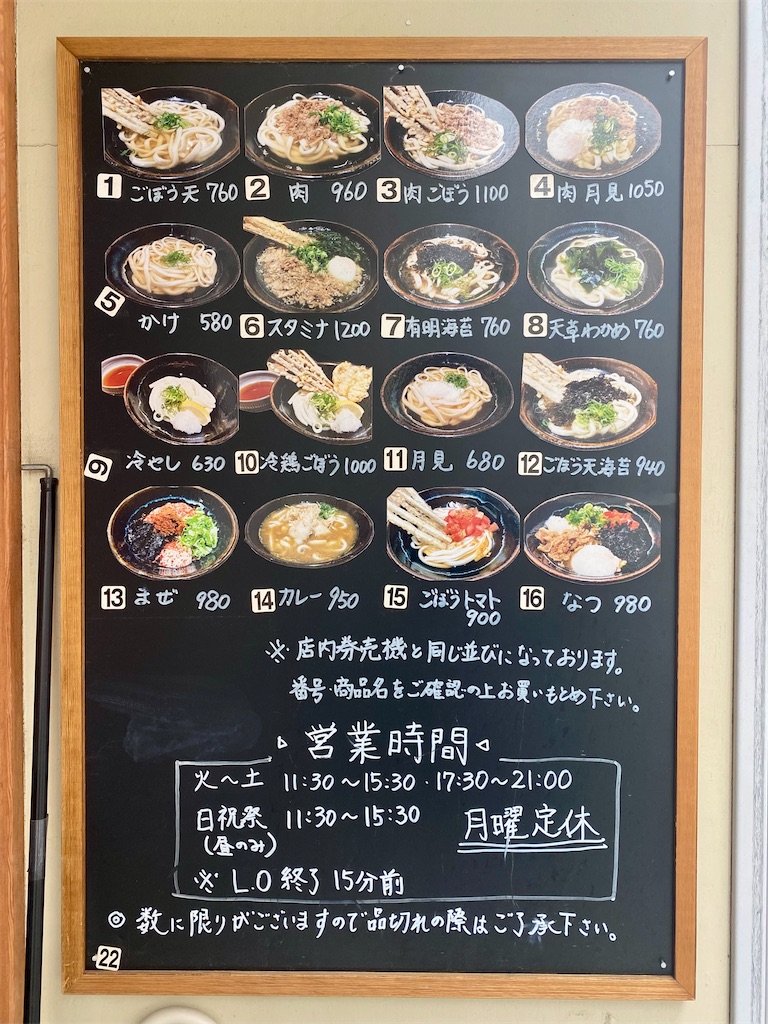 1 ごぼう天 760 2 肉 960 3 肉ごぼう 1100 4 肉月見 1050
5 かけ 580 6 スタミナ 1200 7 有明海苔 760 8 天草わかめ 760
9 冷やし 630 10 冷鶏ごぼう 1000 11 月見 680 12 ごぼう天海苔 940
13 まぜ 980 14 カレー 950 15 ごぼうトマト 900 16 なつ 980
※店内券売機と同じ並びになっております。
番号・商品名をご確認の上お買いもとめ下さい。
▷ 営業時間 ◁
火〜土 11:30〜15:30・17:30〜21:00
日祝祭 11:30〜15:30 月曜定休
(昼のみ)
※ L.O 終了 15分前
◎ 数に限りがございますので品切れの際はご了承下さい。
22